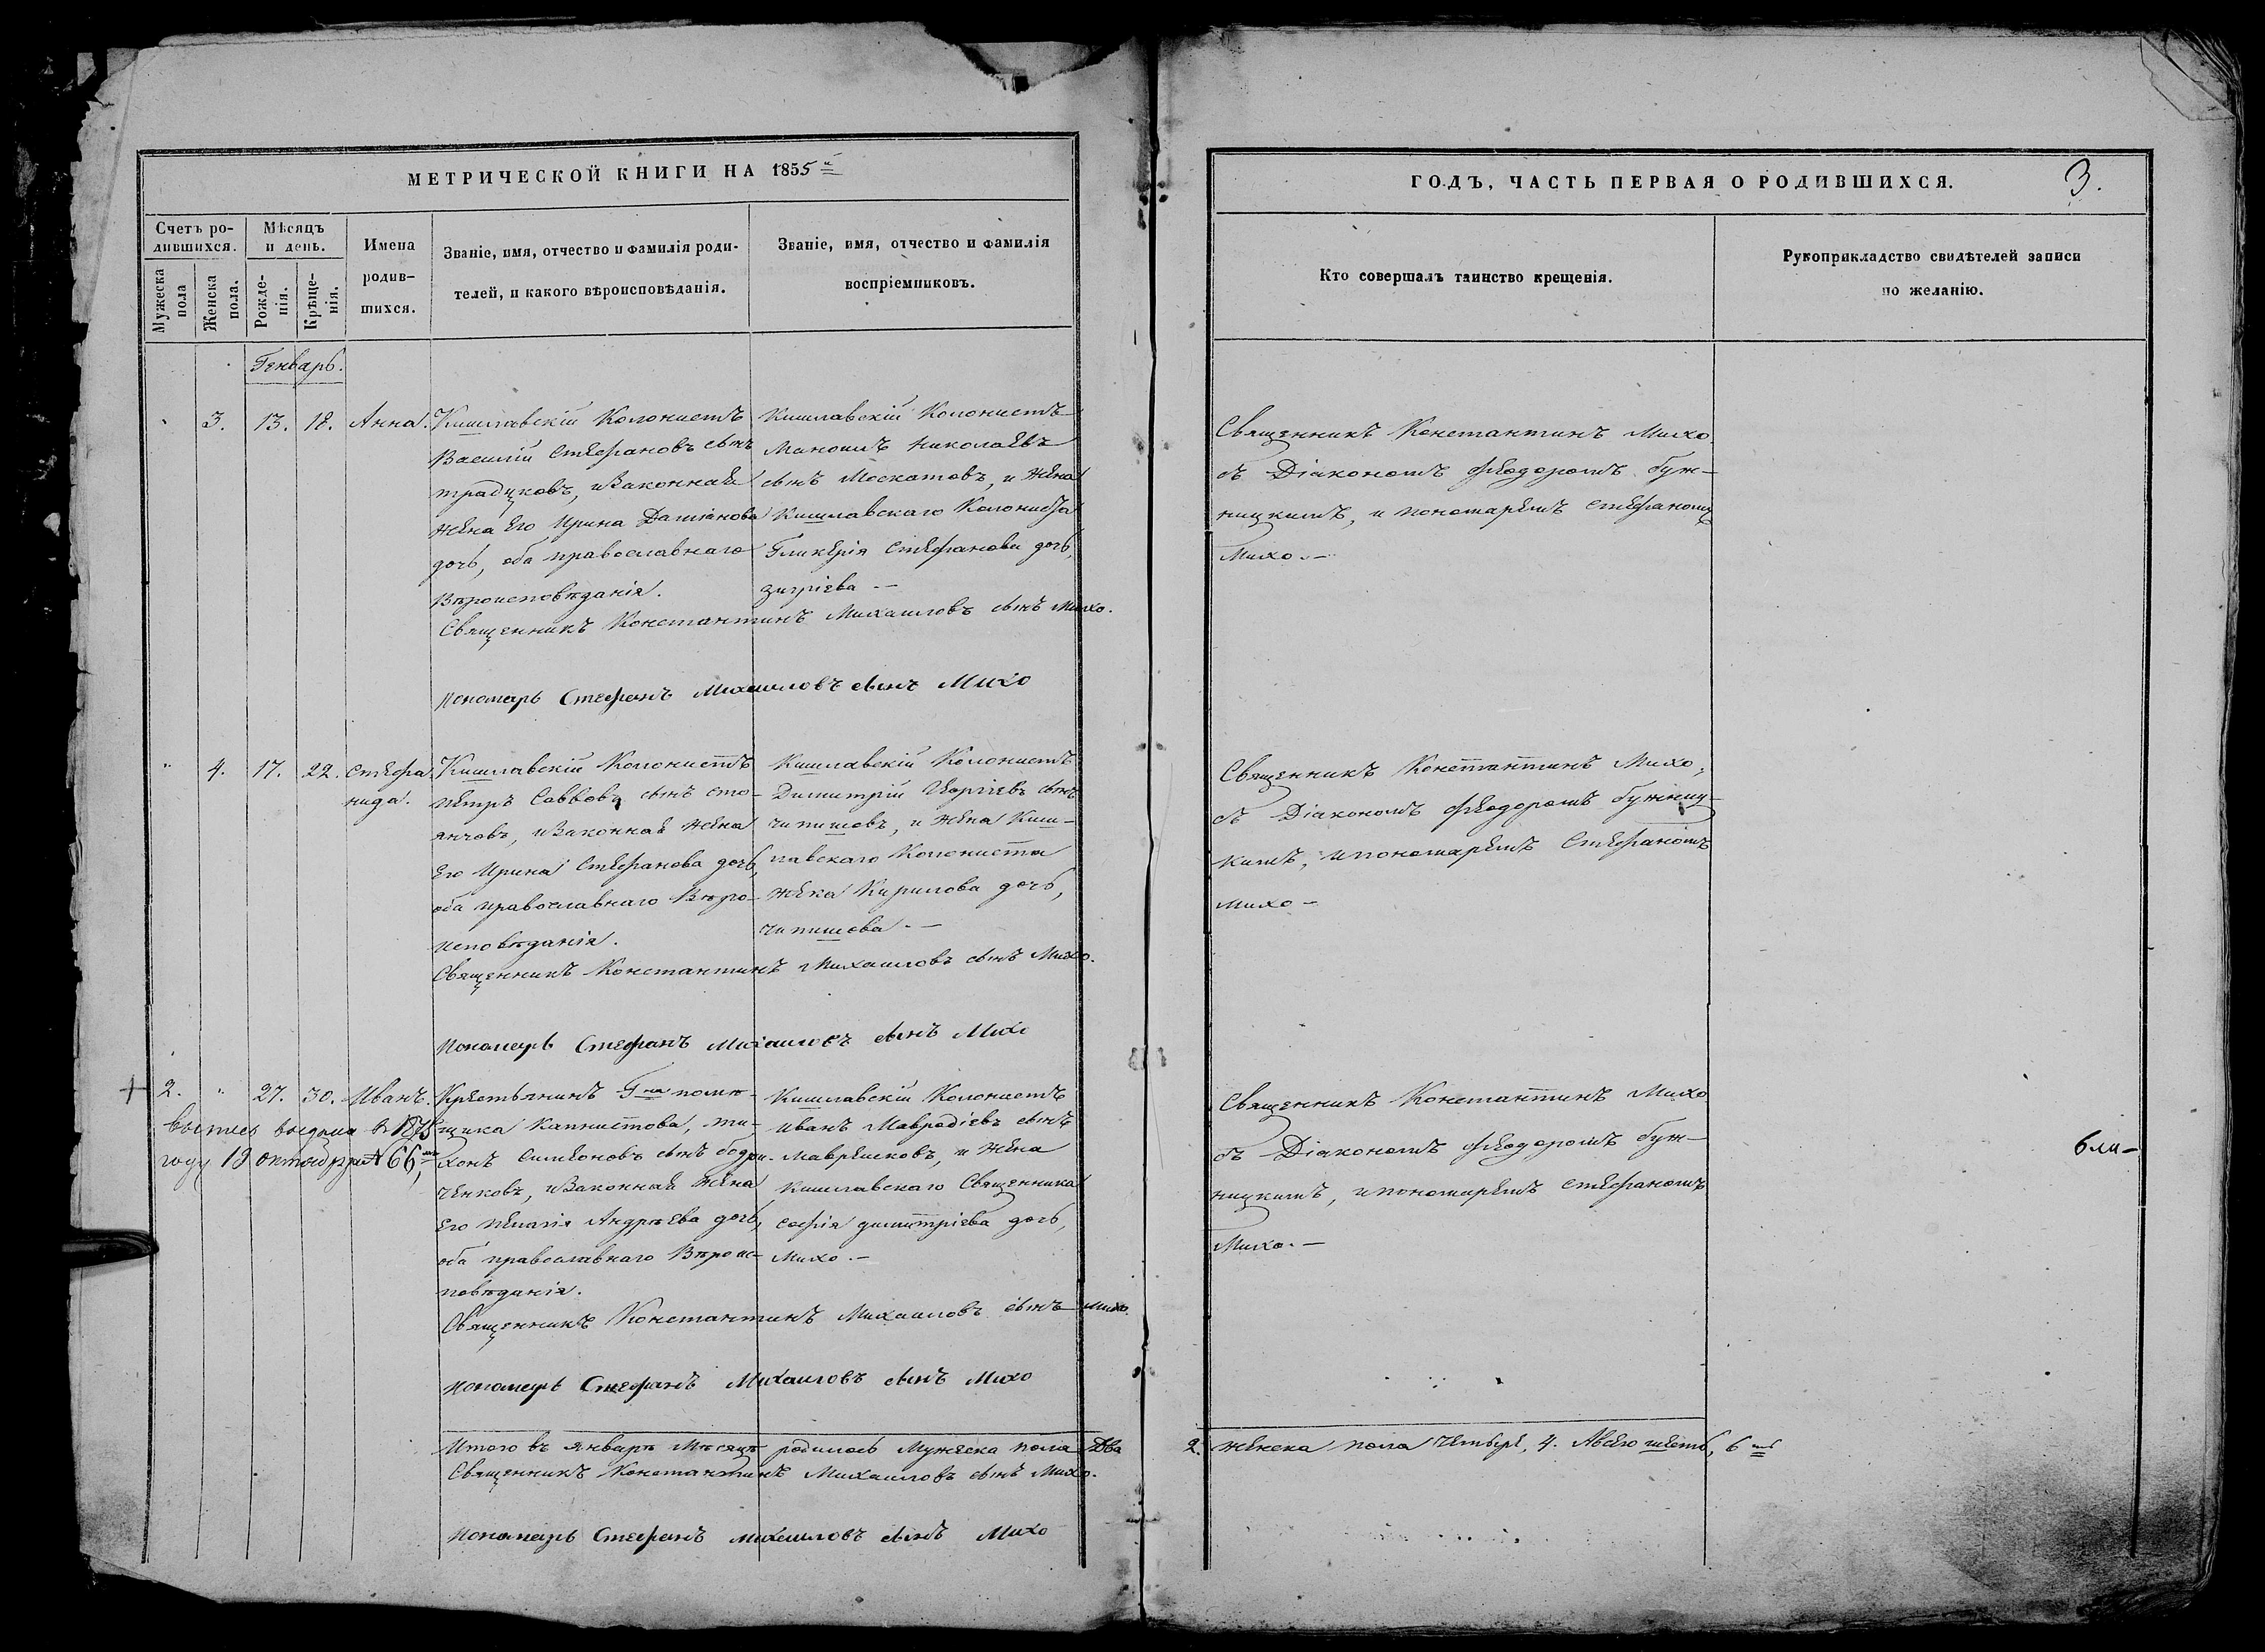 МЕТРИЧЕСКОЙ КНИГИ НА 1855й
Счетъ ро-
дившихся.
Мужеска пола
Женска пола.
Мѣсяцъ
и день.
Рожде-
нія.
Крѣще-
нія.
Имена
родив-
шихся.
Званіе, имя, отчество и фамилія роди-
телей, и какого вѣроисповѣданія.
Званіе, имя, отчество и фамилія
воспріемниковъ.
Генварь.
3. 13. 18. Анна.
Кишлавскій Колонистъ
Василій Стефановъ сынъ
традцковъ, изаконная
жена Его Ирина Даміанова
дочь, оба православнаго
Вѣроисповѣданія.
Кишлавскій Колонистъ
Маноилъ Николаевъ
сынъ Москатовъ, и жена
Кишлавскаго Колониста
Гликерія Стефанова дочь,
Священникъ Константинъ Михаиловъ сынъ Михо.
Пономарь Стефанъ Михаиловъ сынъ Михо
4. 17. 22. Стефа
нида.
Кишлавскій Колонистъ
Петръ Саввовъ сынъ сто-
янчовъ, изаконная жена
Его Ирина Стефанова дочь,
оба православнаго Вѣро-
исповѣданія.
Кишлавскій Колонистъ
Димитрій Георгіевъ сынъ
чипишовъ, и жена Киш-
лавскаго Колониста
Кирилова дочь,
чипишова. —
Священникъ Константинъ Михаиловъ сынъ Михо.
Пономарь Стефанъ Михаиловъ сынъ Михо
2. 27. 30. Иванъ.
году 19 октября № 66,
Крестьянинъ Гна помѣ-
щика Капнистова, ти-
хонъ Симеоновъ сынъ бодри-
ченковъ, изаконная жена
Его Пелагія Андреева дочь,
оба православнаго Вѣроис-
повѣданія.
Кишлавскій Колонистъ
Иванъ Мавродіевъ сынъ
и жена
Кишлавскаго Священника
Софія димитріева дочь,
Михо. —
Священникъ Константинъ Михаиловъ сынъ Михо.
Пономарь Стефанъ Михаиловъ сынъ Михо
Итого въ январѣ Мѣсяцѣ родилось Мужеска пола Два
Священникъ Константинъ Михаиловъ сынъ Михо.
Пономарь Стефанъ Михаиловъ сынъ Михо
ГОДЪ, ЧАСТЬ ПЕРВАЯ О РОДИВШИХСЯ.
3.
Кто совершалъ таинство крещенія.
Рукоприкладство свидѣтелей записи
по желанію.
Священникъ Константинъ Михо
съ Діакономъ Феодоромъ Буж-
ницкимъ, и пономаремъ Стефаномъ
Михо. —
Священникъ Константинъ Михо,
съ Діакономъ Феодоромъ Бужниц-
кимъ, ипономаремъ Стефаномъ
Михо —
Священникъ Константинъ Михо
съ Діакономъ Феодоромъ Буж-
ницкимъ, ипономаремъ Стефаномъ
Михо. —
2. Женска пола Четыре, 4. Авсего шесть, 6ть